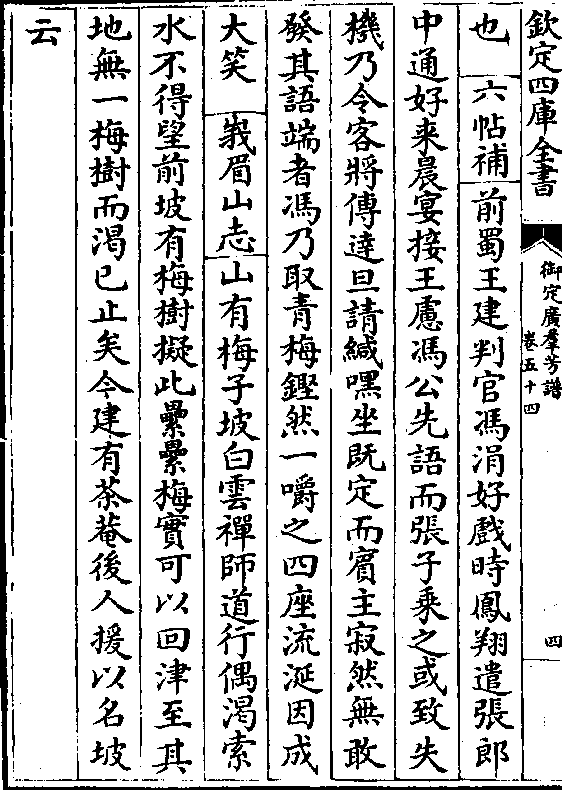 欽定四庫全書
御定廣羣芳譜
卷五十四
四
也 六帖補 前蜀王建判官馮涓好戲時鳳翔遣張郎
中通好来晨宴接王慮馮公先語而張子乘之或致失
機乃令客將傳達旦請緘嘿坐既定而賓主寂然無敢
發其語端者馮乃取青梅鏗然一嚼之四座流涎因成
大笑 峩眉山志 山有梅子坡白雲禪師道行偶渴索
水不得望前坡有梅樹擬此纍纍梅實可以回津至其
地無一梅樹而渴已止矣今建有茶菴後人援以名坡
云